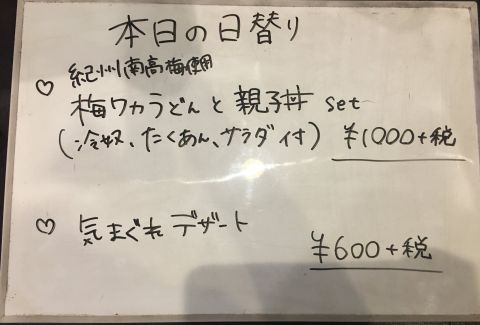 本日の日替り
♡ 紀州南高梅使用
梅ワカうどんと親子丼 set
(冷奴、たくあん、サラダ付) ¥1000+税
♡ 気まぐれデザート
¥600+税